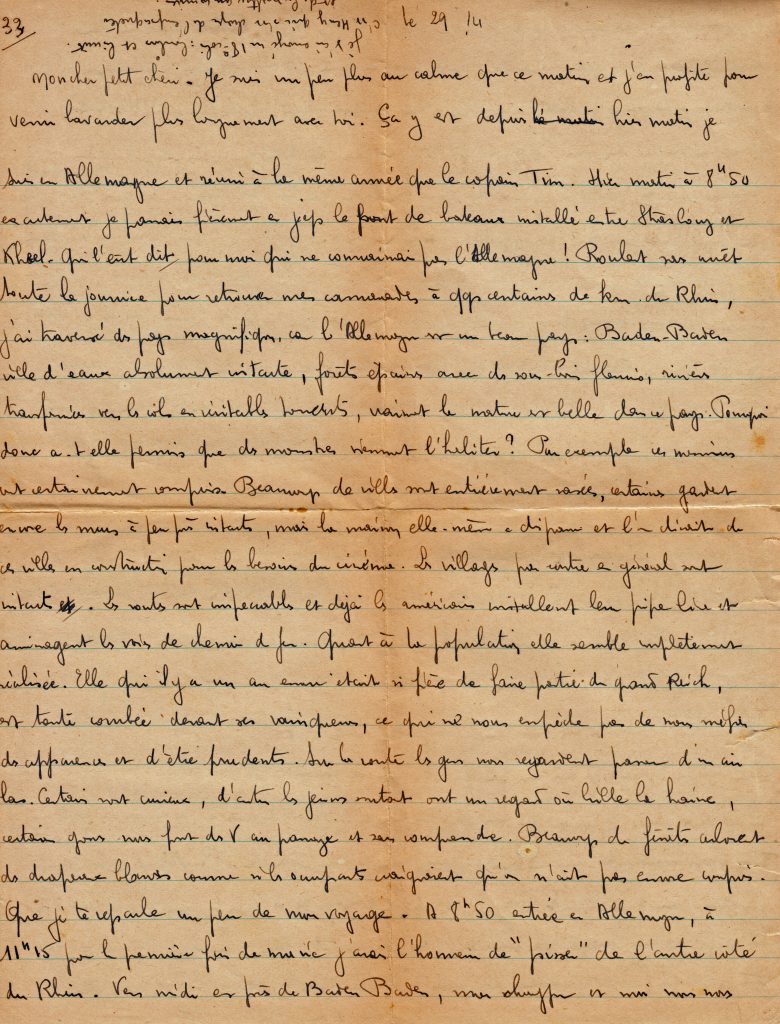 33
le 29/4
Mon cher petit chéri. Je suis un peu plus au calme que ce matin et j'en profite pour
venir bavarder plus longuement avec toi. Ça y est depuis le matin hier matin je
suis en Allemagne et réuni à la même armée que le copain Tim. Hier matin à 8h50
exactement je passais fièrement en jeep le pont de bateaux installé entre Strasbourg et
Khel. Qui l'eut dit pour moi qui ne connaissais pas l'Allemagne ! Roulant sans arrêt
toute la journée pour retrouver mes camarades à qqs centaines de km du Rhin,
j'ai traversé des pays magnifiques, car l'Allemagne est un beau pays : Baden-Baden
ville d'eaux absolument intacte, forêts épaisses avec des sous-bois fleuris, rivières
transformées vers les cols en véritables torrents, vraiment la nature est belle dans ce pays. Pourquoi
donc a-t-elle permis que des monstres viennent l'habiter ? Par exemple ces messieurs
ont certainement compris. Beaucoup de villes sont entièrement rasées, certaines gardent
encore les murs à peu près intacts, mais la maison elle-même a disparu et l'on dirait de
ces villes en construction pour les besoins du cinéma. Les villages par contre en général sont
intacts. Les routes sont impeccables et déjà les américains installent leur pipe line et
aménagent les voies de chemin de fer. Quant à la population elle semble complètement
réalisée. Elle qui il y a un an encore était si fière de faire partie du grand Reich,
est toute courbée devant ses vainqueurs, ce qui ne nous empêche pas de nous méfier
des apparences et d'être prudents. Sur la route les gens nous regardent passer d'un air
las. Certains sont curieux, d'autres les jeunes surtout ont un regard où brille la haine,
certains gosses nous font des V au passage et sans comprendre. Beaucoup de fenêtres arborent
des drapeaux blancs comme si les occupants craignaient qu'on n'ait pas encore compris.
Que je te reparle un peu de mon voyage. A 8h50 entrée en Allemagne, à
11h15 pour la première fois de ma vie j'avais l'honneur de "pisser" de l'autre côté
du Rhin. Vers midi et près de Baden Baden, mon chauffeur et moi nous nous